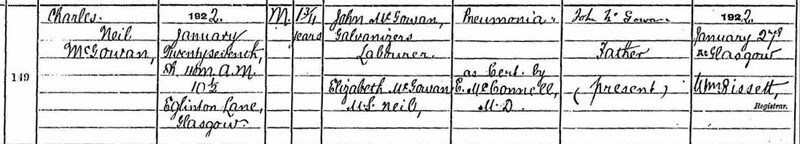 149
Charles
Neil
McGowan,
1922
January
Twentyseventh,
A.M.
10½
Eglinton Lane,
Glasgow.
M
1¾
years
John McGowan
Galvanizers
Labourer
Elizabeth McGowan
M.S. Neil,
Pneumonia
as Cert. by
E. McConnell,
M.D.
John McGowan
Father
(present)
1922.
January 27th
At Glasgow
Wm Bissett,
Registrar.